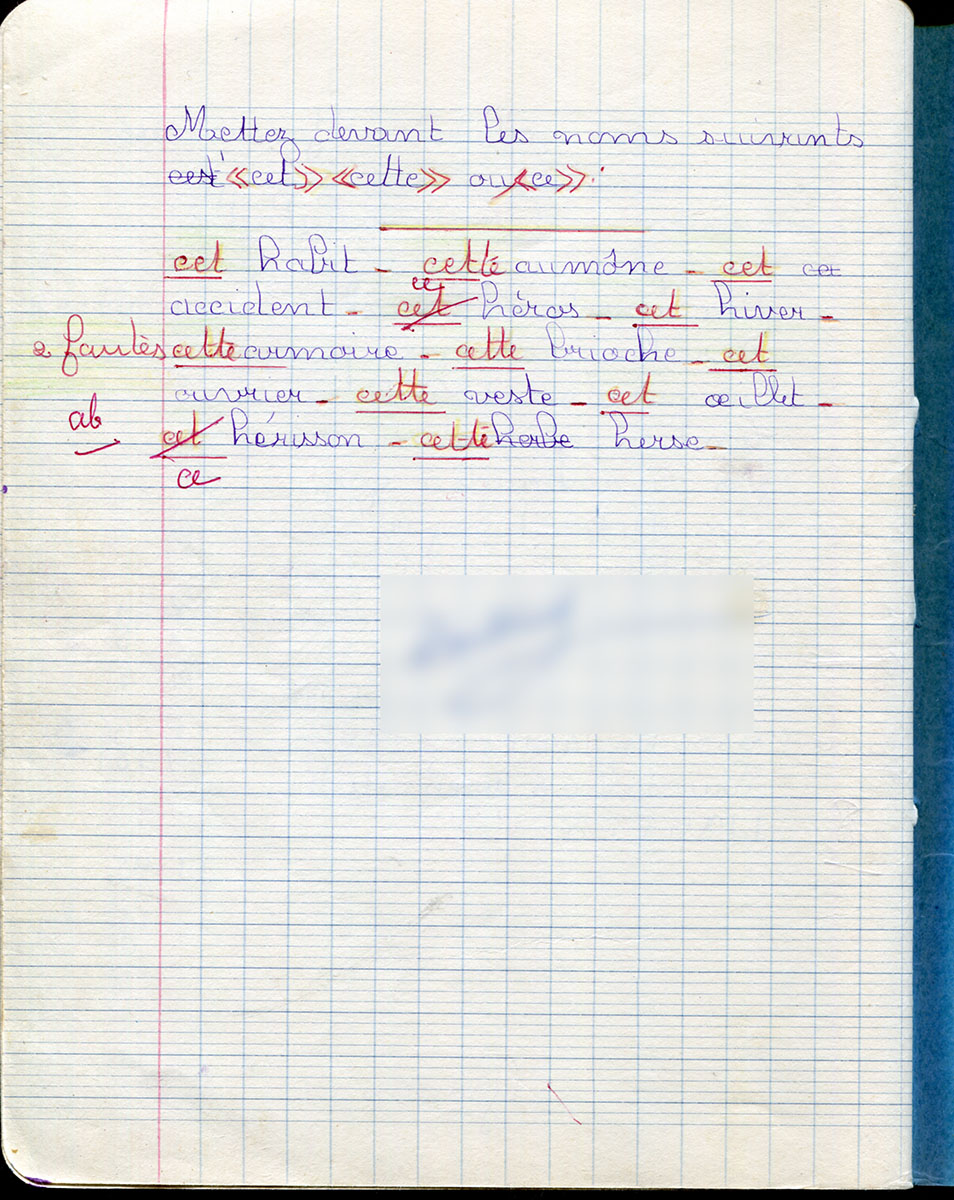 Mettez devant les noms suivants
cet «cet» «cette» ou «ce».
cet habit - cette aumône - cet cet
ce
accident - cet héros - cet hiver -
2 fautes cette armoire - cette brioche - cet
ouvrier - cette veste - cet œillet -
ab
cet hérisson - cette herbe herse -
ce